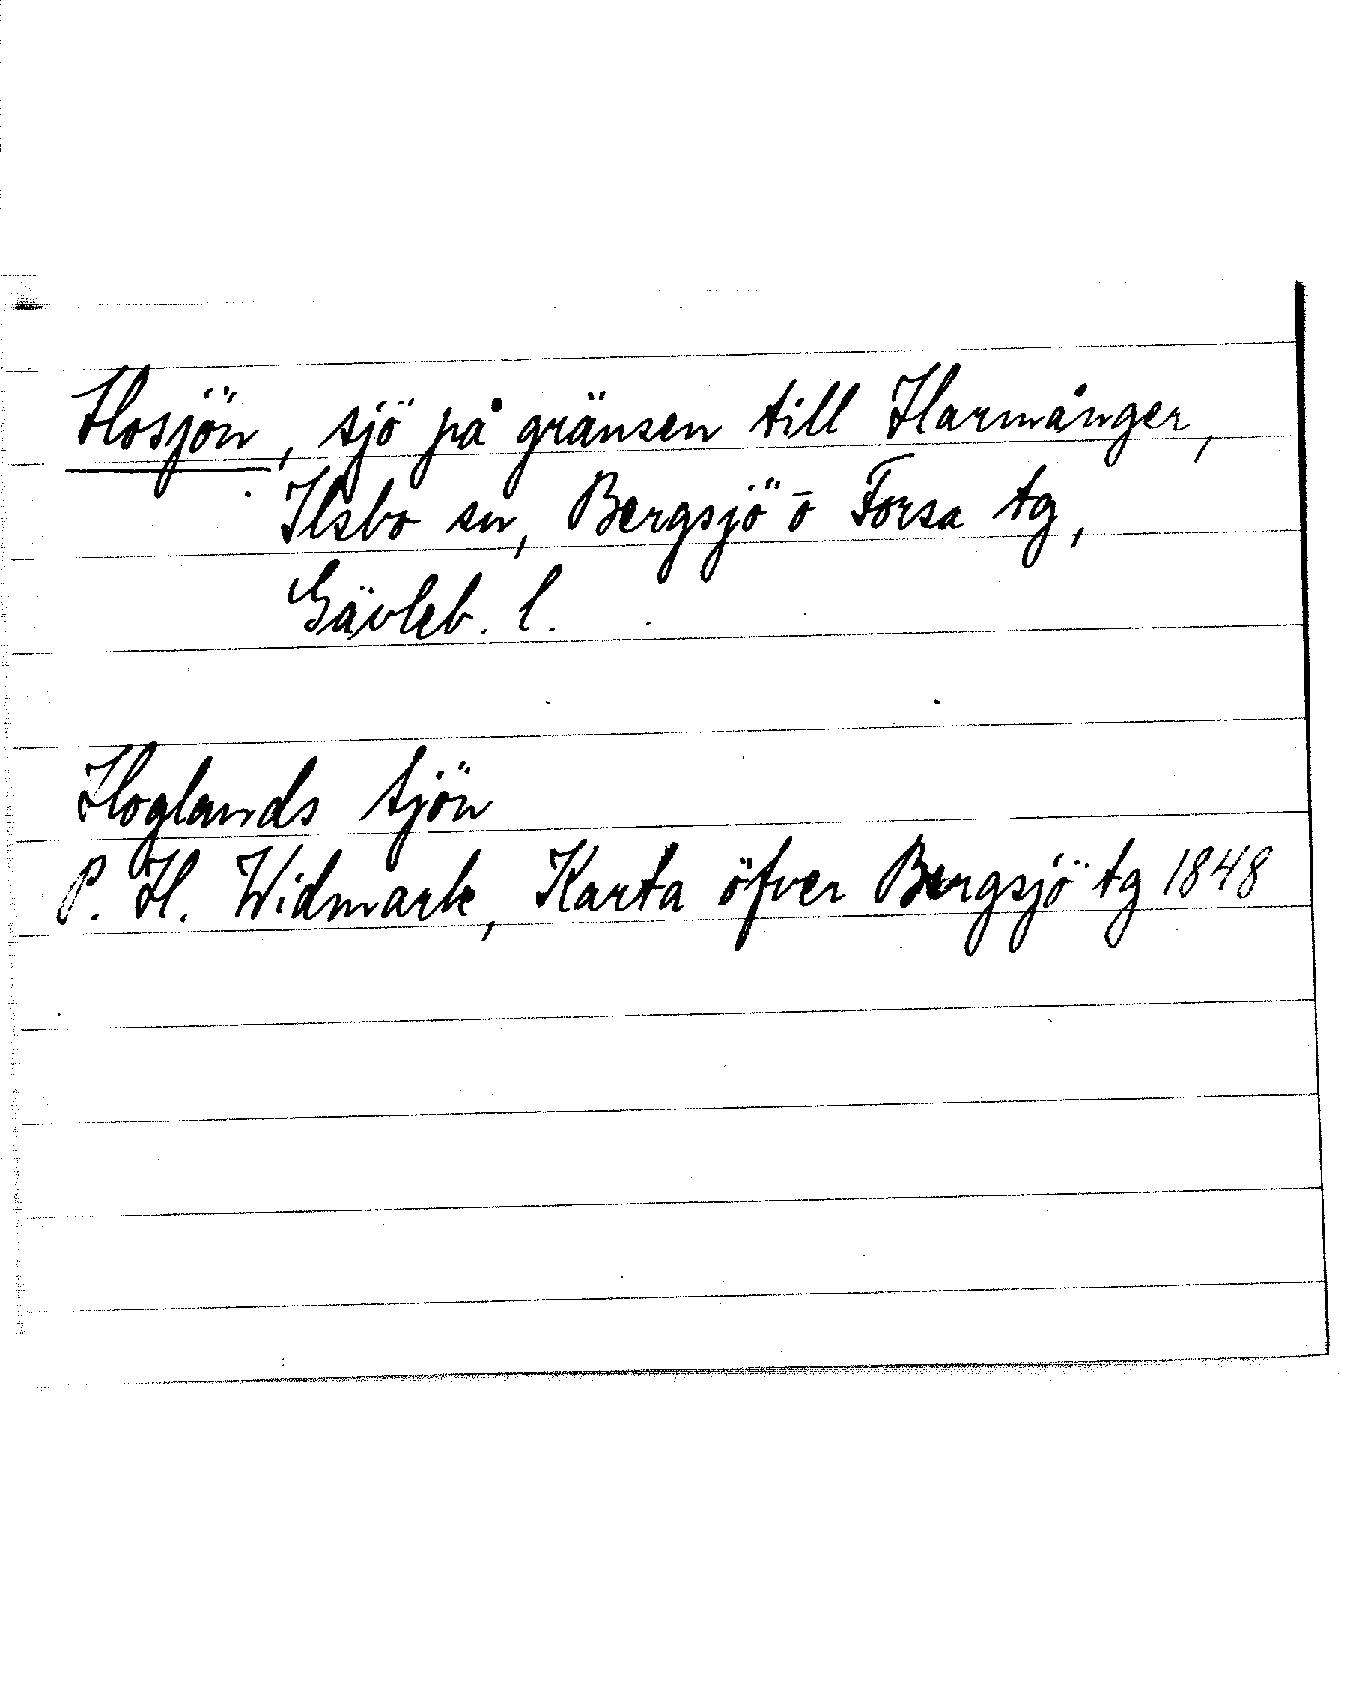 Hosjön, sjö på gränsen till Harmånger,
Ilsbo sn, Bergsjö o Forsa tg,
Gävleb. l.
Hoglands tjön
P. H. Widmark, Karta öfver Bergsjö tg 1848